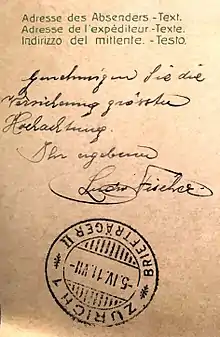 Adresse des Absenders.-Text.
Adresse de l'expéditeur-Texte.
Indirizzo del mittente.-Testo.
Genehmigen Sie die
Versicherung grösster
Hochachtung.
Ihr ergebener
Fischer.
ZÜRICH 1
BRIEFTRÄGER II
-5.IV.11.VII-